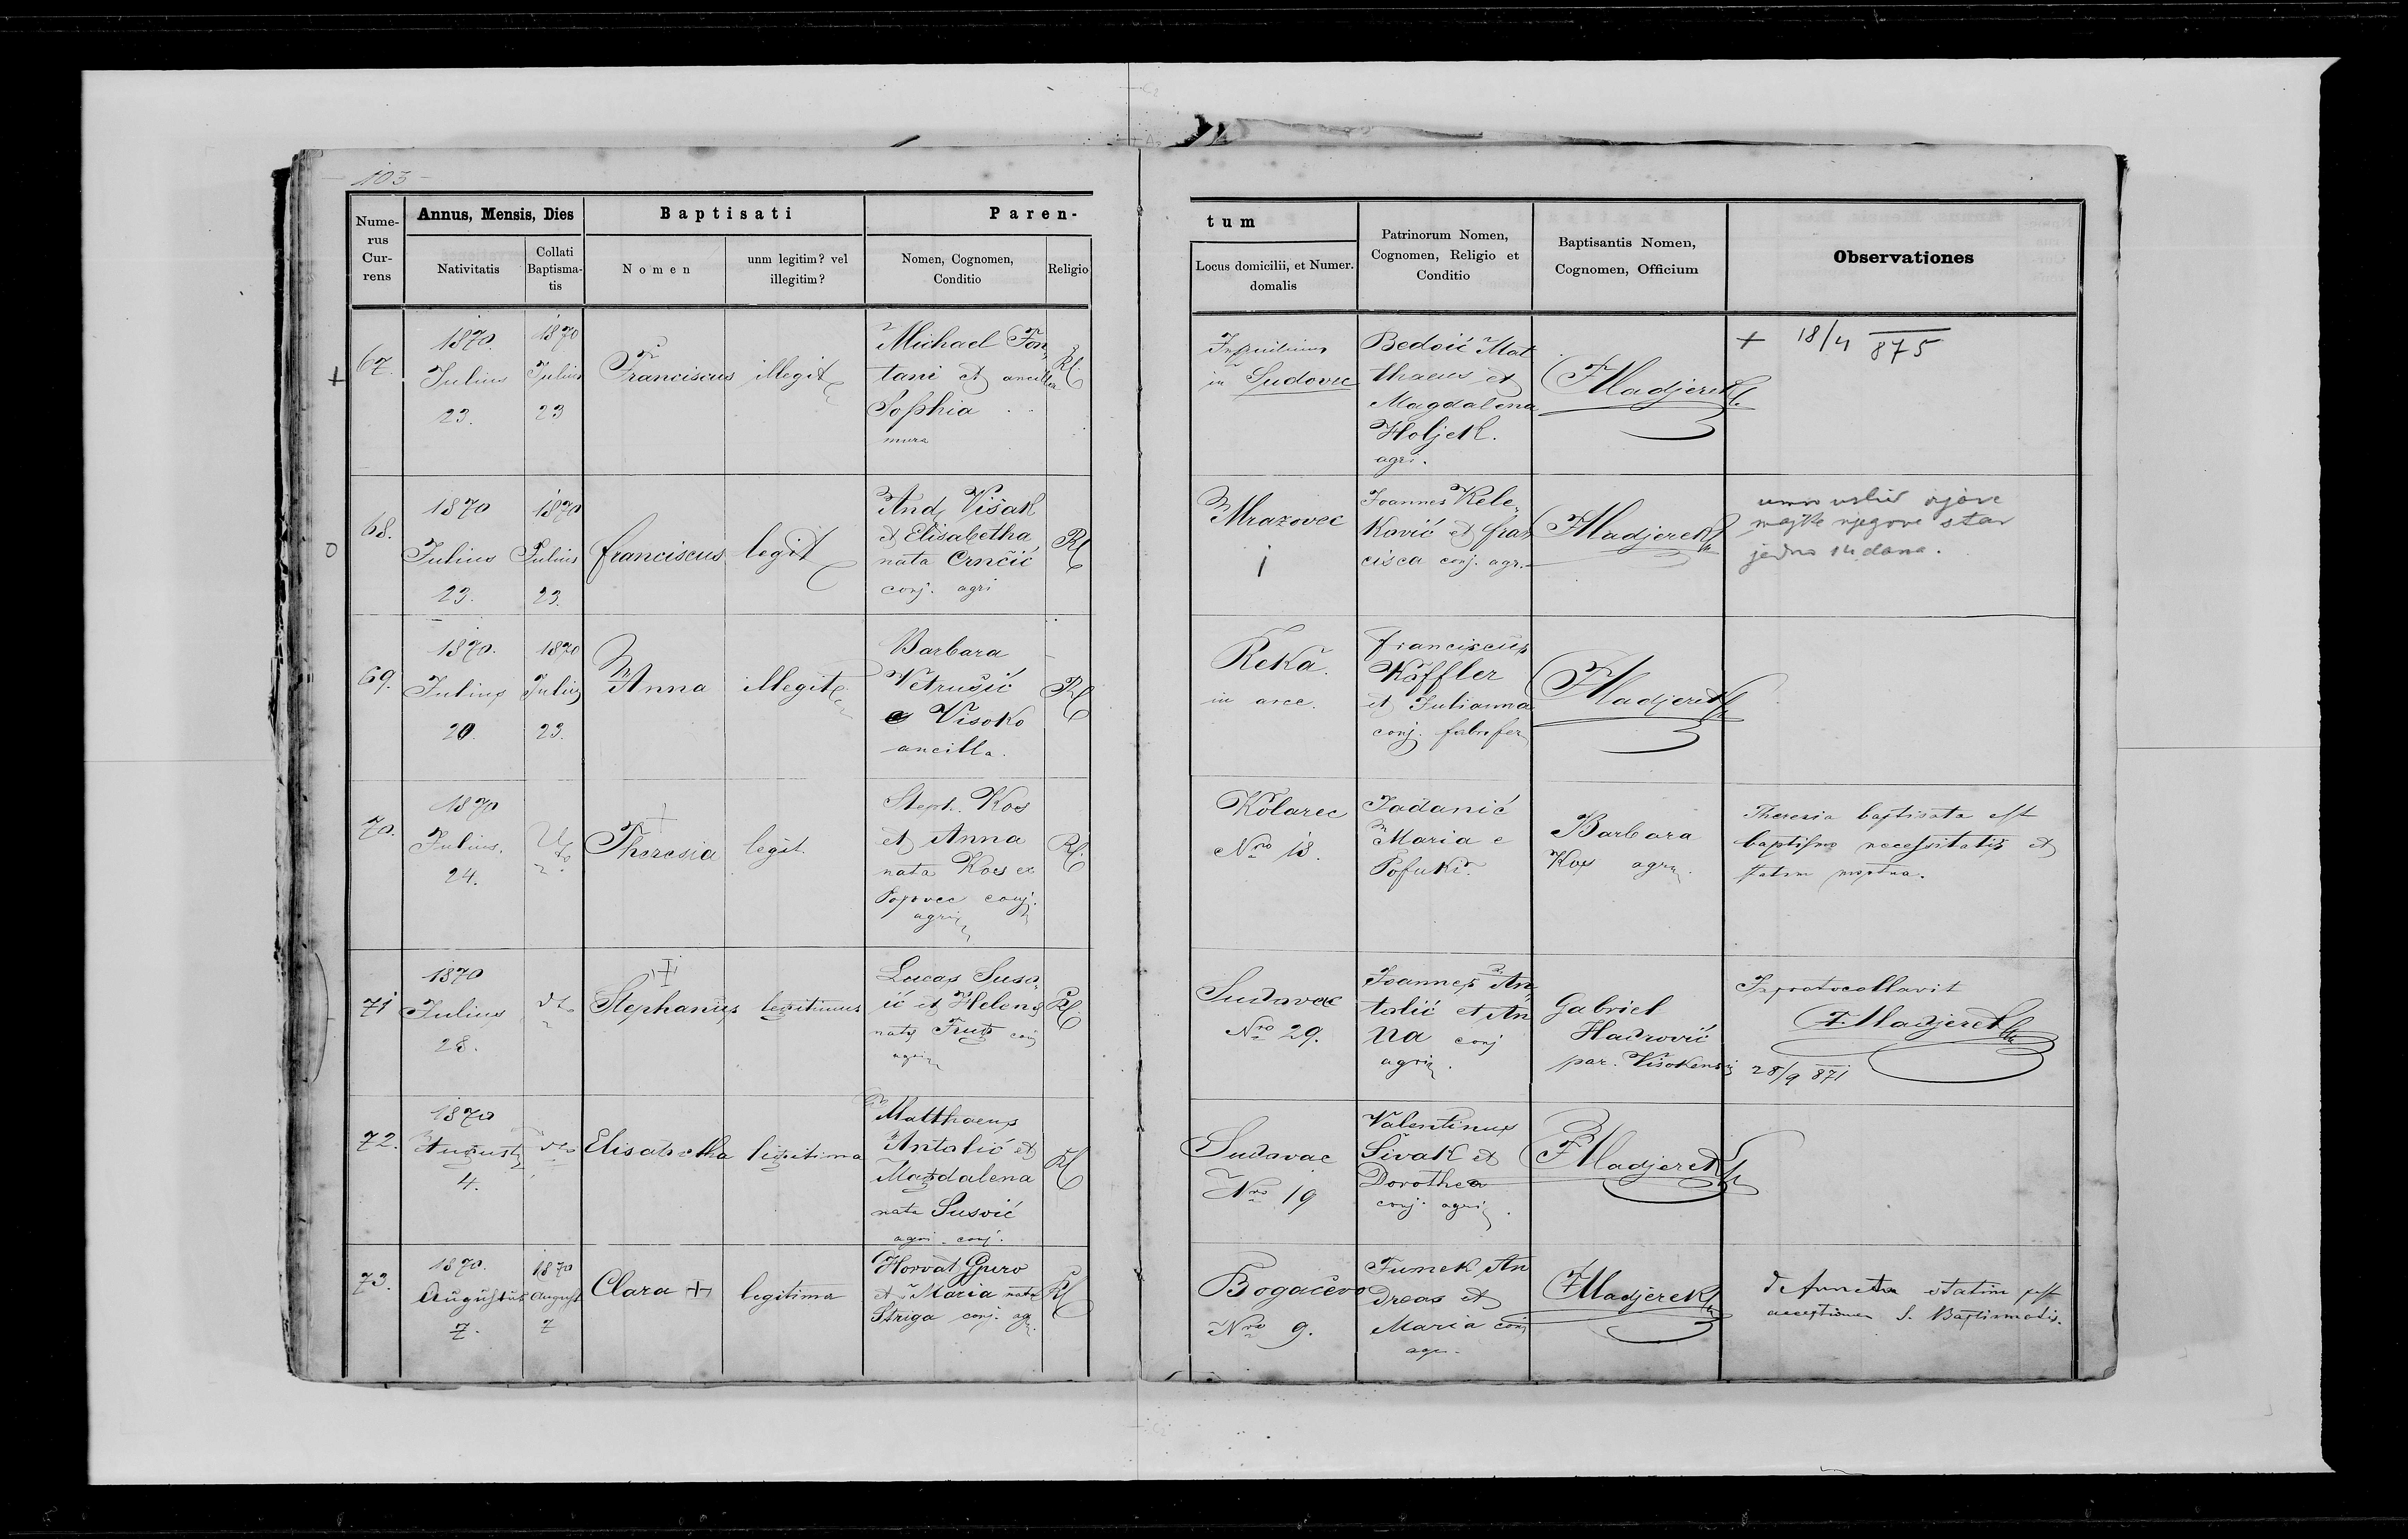 103
Nume-
rus
Cur-
rens
Annus, Mensis, Dies
Nativitatis
Collati
Baptisma-
tis
Baptisati
Nomen
unm legitim? vel
illegitim?
Paren-
Nomen, Cognomen,
Conditio
Religio
tum
Locus domicilii, et Numer.
domalis
Patrinorum Nomen,
Cognomen, Religio et
Conditio
Baptisantis Nomen,
Cognomen, Officium
Observationes
+
67.
1870.
Julius
23.
1870
Julius
23
Franciscus
illegit
Michael Fon
tani et ancilla
Sophia
RC
in Sudovec
Bedoić Mat
thaeus et
Magdalena
Holjek.
agri.
FMadjerek
+ 18/4 875
68.
1870
Julius
23.
1870
Julius
23.
Franciscus
legit
And Višak
et Elisabetha
nata Crnčić
conj. agri
RC
Mrazovec
1
Joannes Kele
Ković et fran
cisca conj. agr.
FMadjerek
majke njegove star
jedno 14 dana.
69.
1870.
Julius
20.
1870
Julius
23.
Anna
illegit
Barbara
Vetrušić
e Visoko
ancilla.
RC
Reka.
in arce.
Franciscus
Köffler
et Julianna
conj. fabrifer
FMadjerek
70.
1870
Julius.
24.
+
Theresia
legit.
Steph. Kos
et Anna
nata Kos ex
Popovec conj.
agri
RC
Kolarec
Nro 18.
Jadanić
Maria e
Pofuki.
Barbara
Kos agri
Theresia baptisata est
baptismo necessitatis et
statim mortua.
71
1870
Julius
28.
dto
+
Stephanus
legitimus
Lucas Suso
ić et Helena
nata Frug conj
agri
RC
Sudovac
Nro 29.
Joannes An
tolić et An
na conj
agri.
Gabriel
Hadrović
par. Visokensis
Inprotocollavit
F.Madjerek
28/9 871
72.
1870
August
4.
dto
Elisabetha
legitima
Matthaeus
Antolić et
Magdalena
nata Susvić
agri. conj.
RC
Sudovac
Nro 19
Valentinus
Sivak et
Dorothea
conj. agri.
FMadjerek
73.
1870.
Augustus
7.
1870
August
7
Clara +
legitima
Horvat Gjuro
et Maria nata
Striga conj. agr.
RC
Bogačevo
Nro 9.
Fumek An
dreas et
Maria conj
agr.
FMadjerek
defuncta statim post
acceptionem S. Baptismatis.